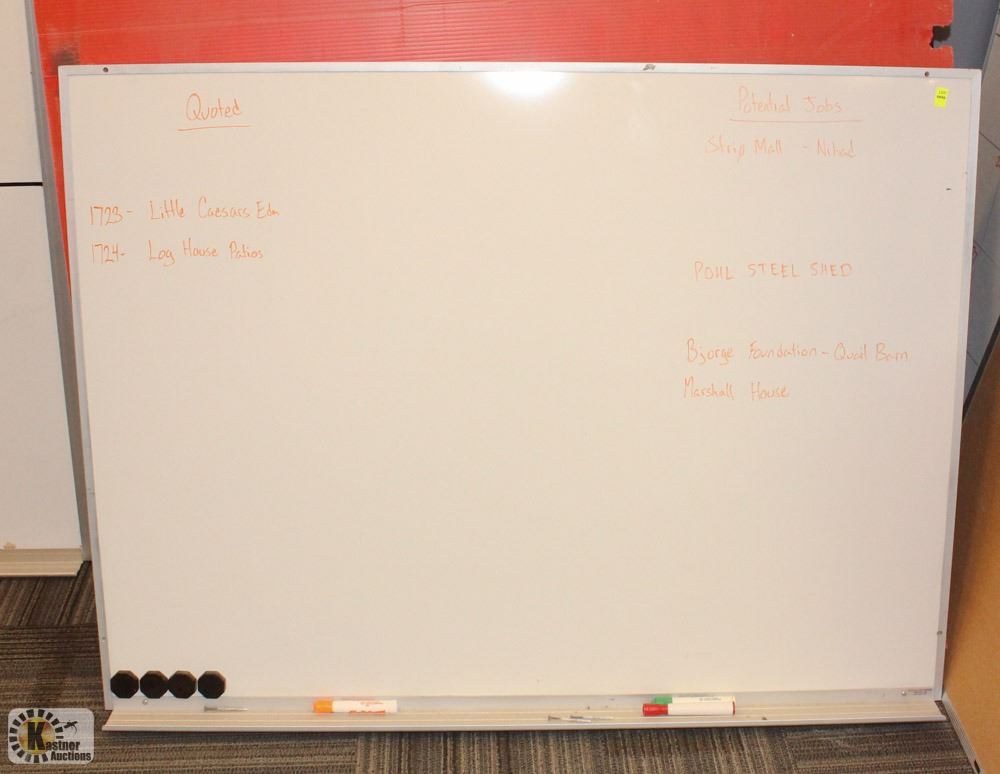 Quoted
1723- Little Caesars Edm
1724- Log House Patios
Potential Jobs
Strip Mall - Nihad
POHL STEEL SHED
Bjorge Foundation - Quail Barn
Marshall House
Kastner
Auctions